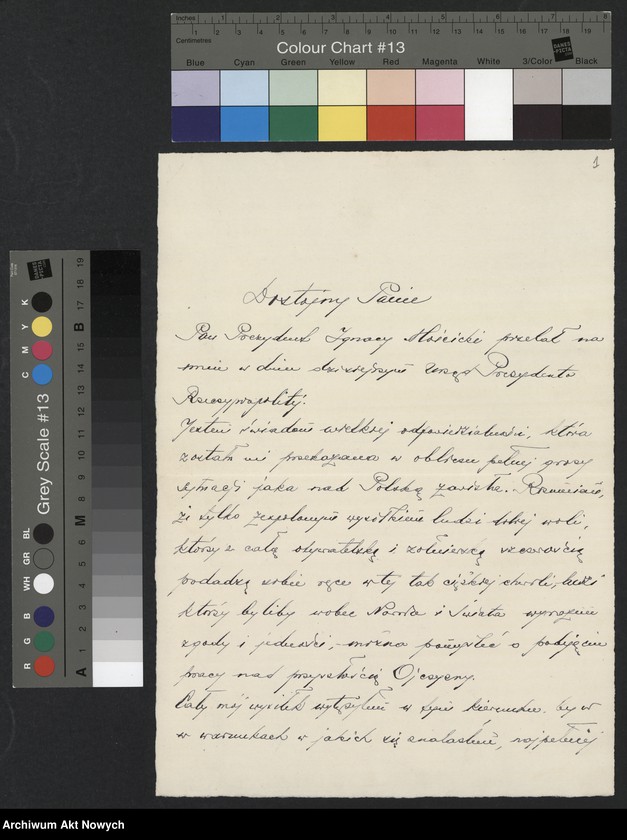 Inches 1 2 3 4 5 6 7 8
Centimetres 1 2 3 4 5 6 7 8 9 10 11 12 13 14 15 16 17 18 19
Colour Chart #13
DANES PICTA
Blue Cyan Green Yellow Red Magenta White 3/Color Black
1
Dostojny Panie
Pan Prezydent Ignacy Mościcki przelał na
mnie w dniu dzisiejszym urząd Prezydenta
Rzeczypospolitej.
Jestem świadom wielkiej odpowiedzialności, która
została mi przekazana w obliczu pełnej grozy
sytuacji jaka nad Polską zawisła. Rozumiem,
że tylko zespolonym wysiłkiem ludzi dobrej woli,
którzy z całą obywatelską i żołnierską
podadzą sobie ręce w tej tak ciężkiej chwili, ludzi
którzy byliby wobec Narodu i Świata wyrazem
zgody i jedności, - można pomyśleć o podjęciu
pracy nad przyszłością Ojczyzny.
Cały mój wysiłek wytężyłem w tym kierunku, by w
w warunkach w jakich się znalazłem, najpełniej
Grey Scale #13
DANES PICTA
C M Y K
R G B WH GR BL
A 1 2 3 4 5 6 M 8 9 10 11 12 13 14 15 B 17 18 19
Archiwum Akt Nowych